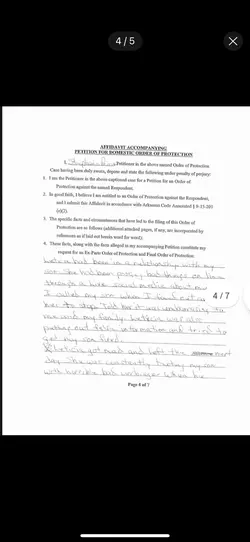 4/5
AFFIDAVIT ACCOMPANYING
PETITION FOR DOMESTIC ORDER OF PROTECTION
I, Petitioner in the above named Order of Protection
Case having been duly sworn, depose and state the following under penalty of perjury:
1. I am the Petitioner in the above captioned case for a Petition for an Order of
Protection against the named Respondent.
2. In good faith, I believe I am entitled to an Order of Protection against the Respondent,
and I submit this Affidavit in accordance with Arkansas Code Annotated § 9-15-201
3. The specific facts and circumstances that have led to the filing of this Order of
Protection are as follows (additional attached pages, if any, are incorporated by
reference as if laid out herein word for word):
4. These facts, along with the facts alleged in my accompanying Petition constitute my
request for an Ex Parte Order of Protection and Final Order of Protection:
had been in a relationship with my
son. She had been posting bad things on
social media about me
4/7
I called my son when I found out
her to stop. Told her it was
me and my family. was also
putting out false information and tried to
get my son fired.
got mad and left the next
day. She was constantly my son
with horrible bad when he
Page 6 of 7